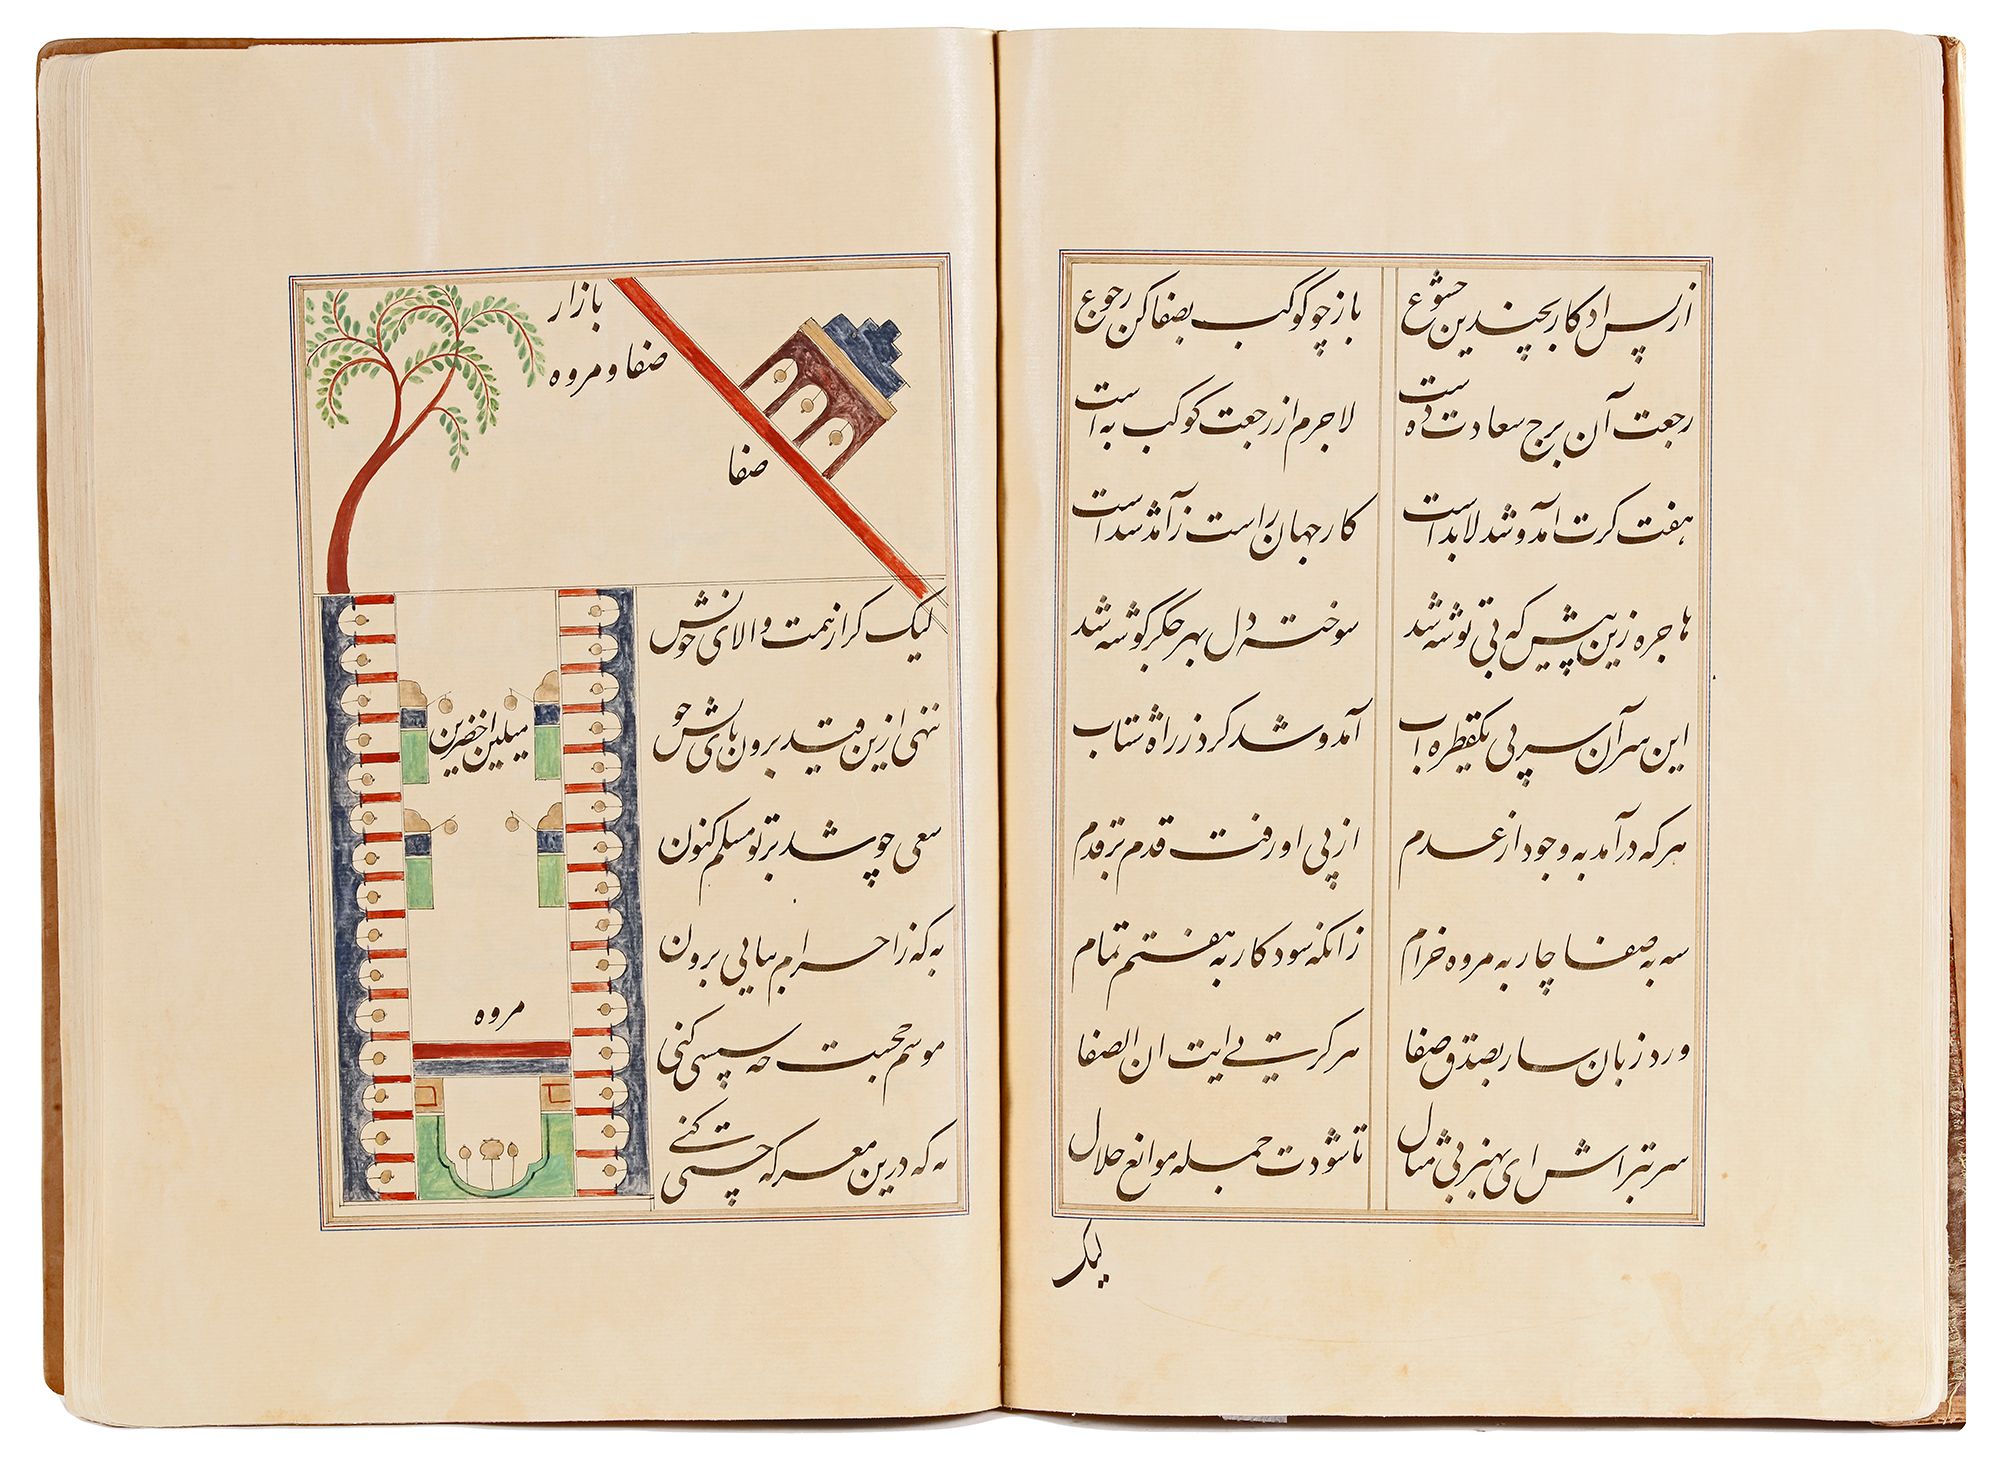 از پس اذکار بچندین خشوع باز چو کوکب بصفا کن رجوع
رجعت آن برج سعادت ده است لاجرم از رجعت کوکب به است
هفت کرت آمد و شد لابد است کار جهان راست ز آمد شد است
هاجره زین پیش که بی توشه شد سوخته دل بهر جگر گوشه شد
این سر آن سر پی یکقطره آب آمد و شد کرد ز راه شتاب
هر که در آمد به وجود از عدم از پی او رفت قدم بر قدم
سه به صفا چار به مروه خرام زانکه شود کار به هفتم تمام
ورد زبان ساز بصدق و صفا هر کرتی ایت ان الصفا
سر بتراش ای بهنر بی مثال تا شودت جمله موانع حلال
لیک
بازار
صفا و مروه
صفا
میلین اخضرین
مروه
لیک گر از همت والای خویش
ننهی ازین قید برون پای خویش
سعی چو شد بر تو مسلم کنون
به که ز احرام نیایی برون
موسم حجست چه سپسی کنی
به که درین معرکه چستی کنی